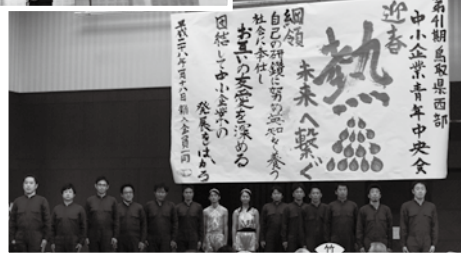 第41期鳥取県西部
中小企業青年中央会
迎春
熱
未来へ繋ぐ
綱領
自己の研鑽に努め英知を養う
社会に奉仕し
お互いの友愛を深める
団結して中小企業の
発展をはかる
平成二十八年一月八日 新入会員一同
竹